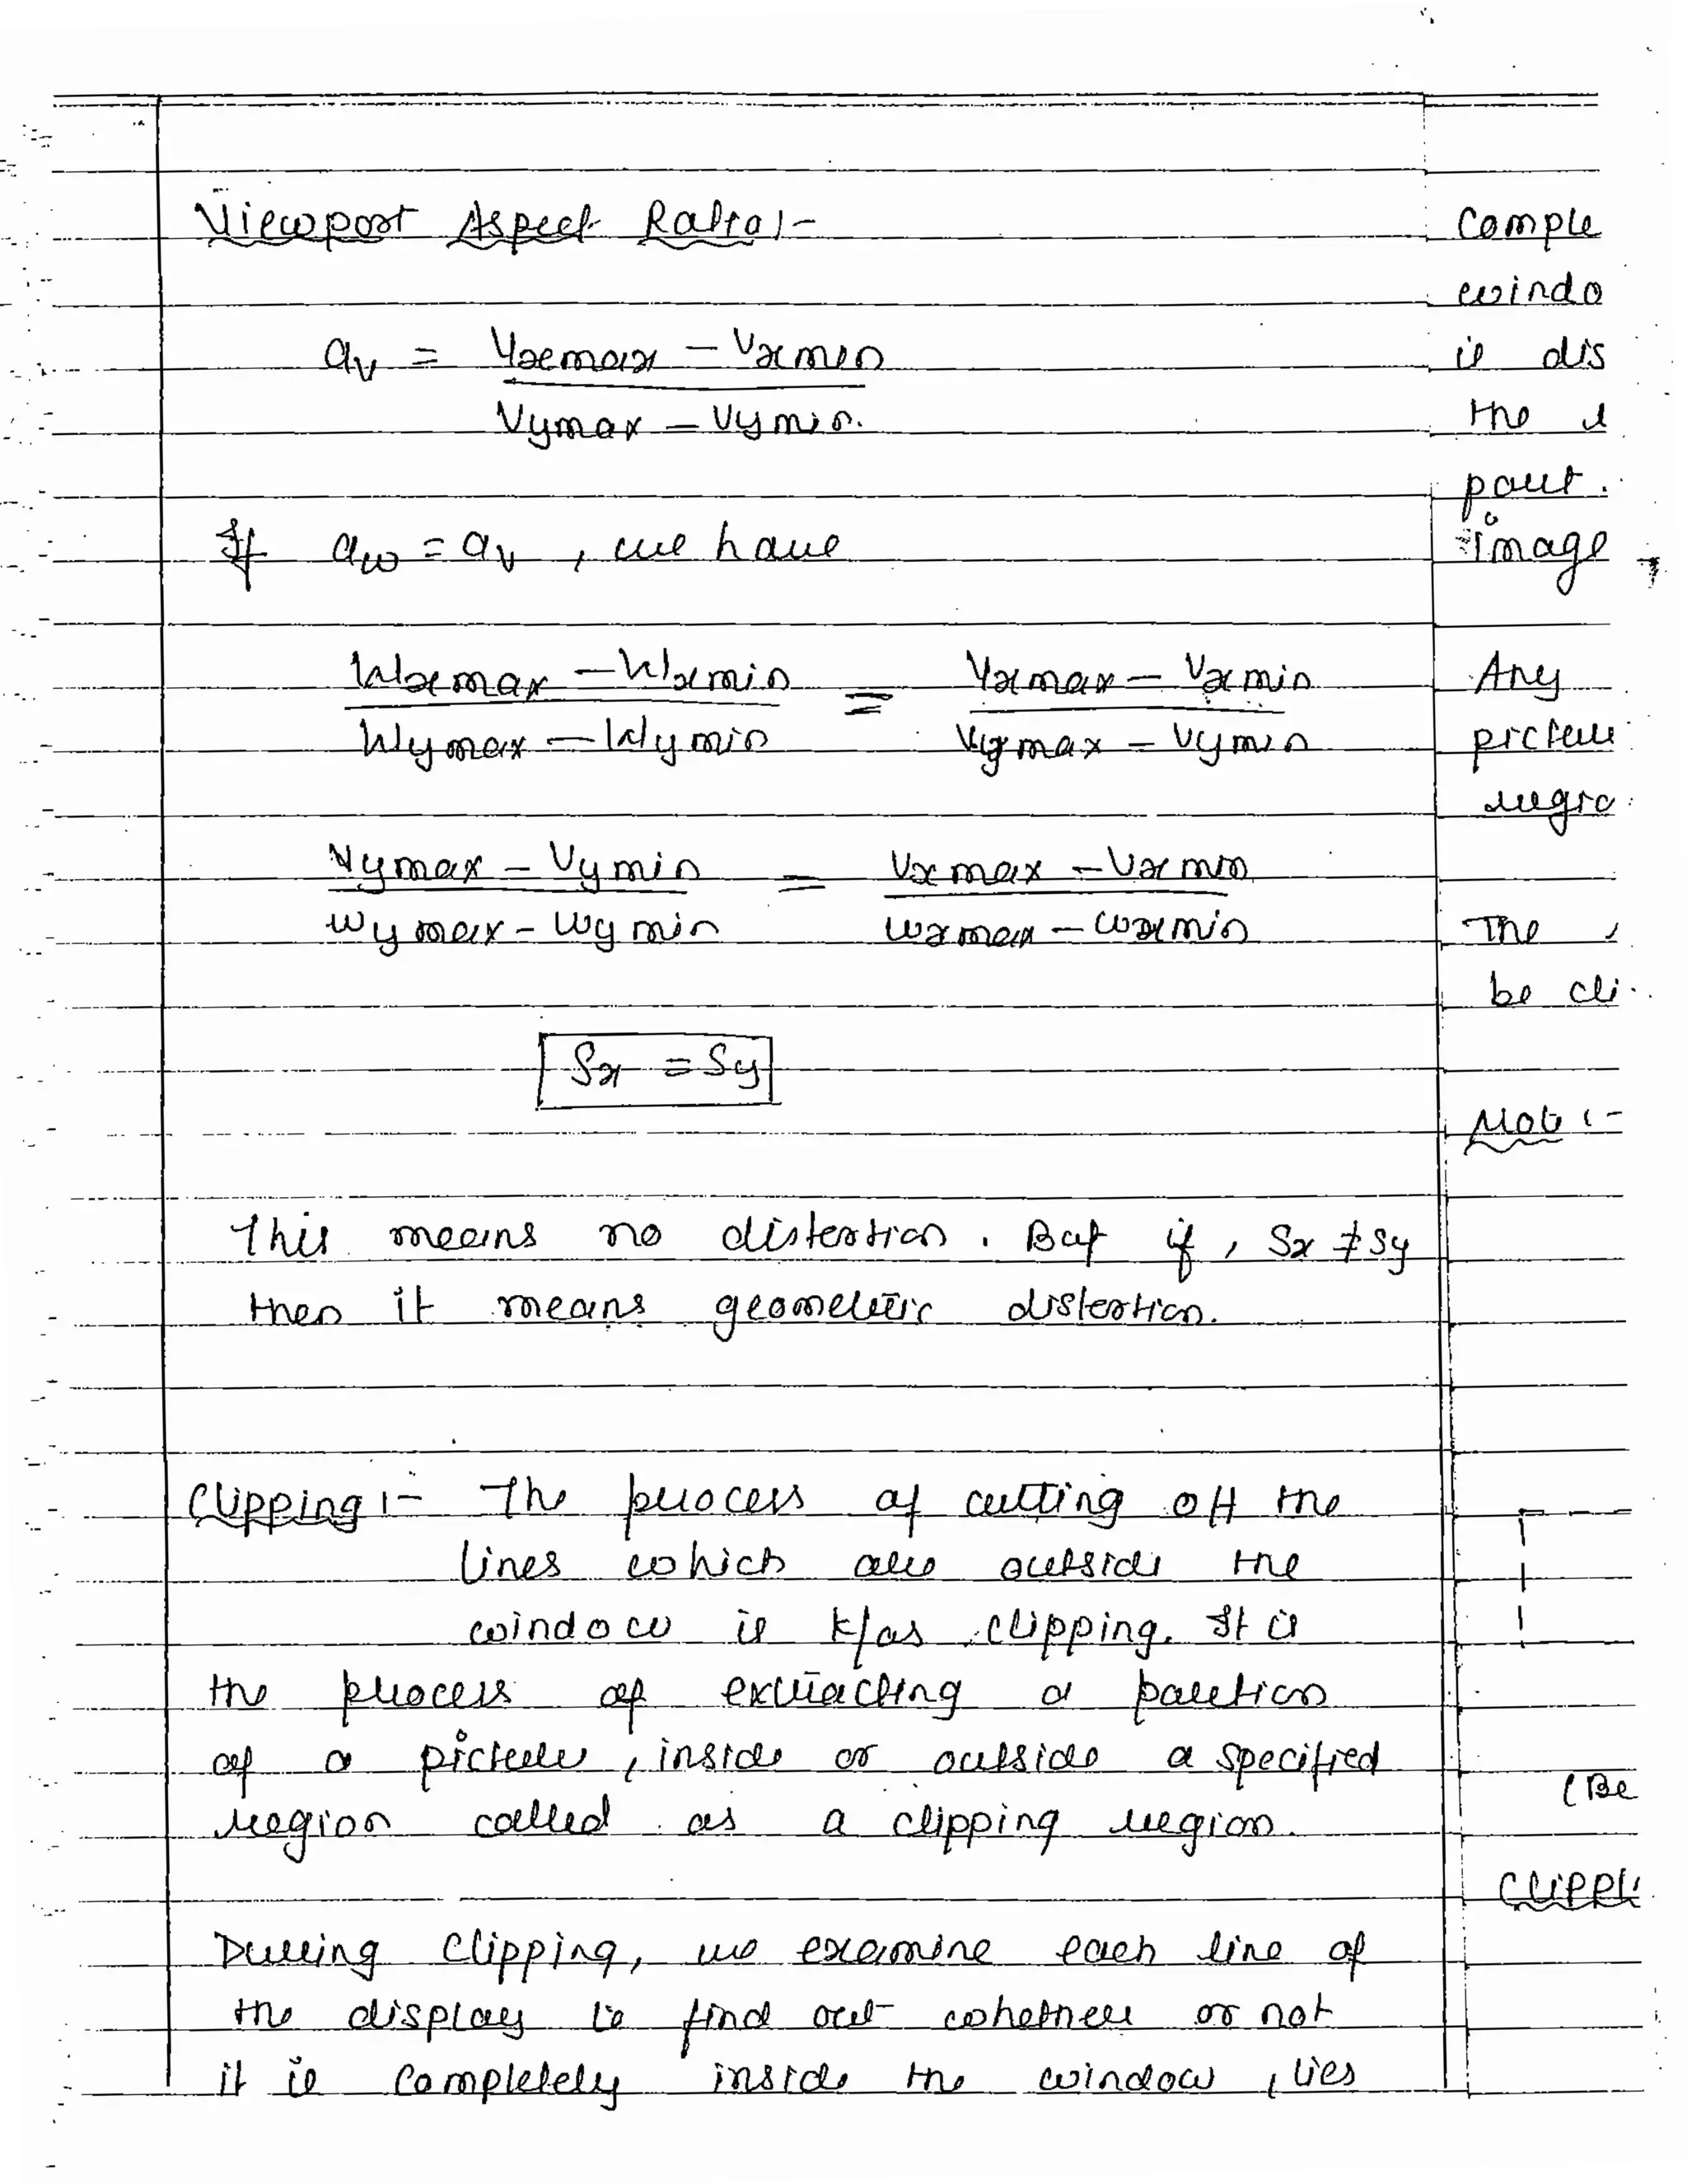 Viewport Aspect Ratio :-
av = Vxmax - Vxmin
Vymax - Vymin.
If aw = av , we have
Wxmax - Wxmin = Vxmax - Vxmin
Wymax - Wymin Vymax - Vymin
Vymax - Vymin = Vxmax - Vxmin
Wymax - Wymin Wxmax - Wxmin
Sx = Sy
This means no distortion. But if, Sx ≠ Sy
then it means geometric distortion.
Clipping :- The process of cutting off the
lines which are outside the
window is k/as clipping. It is
the process of extracting a portion
of a picture, inside or outside a specified
region called as a clipping region.
During clipping, we examine each line of
the display to find out whether or not
it is completely inside the window, lies
Comple
windo
is dis
the
part.
image
Any
picture
regio
The
be cli
Note :-
(Be
Clippi